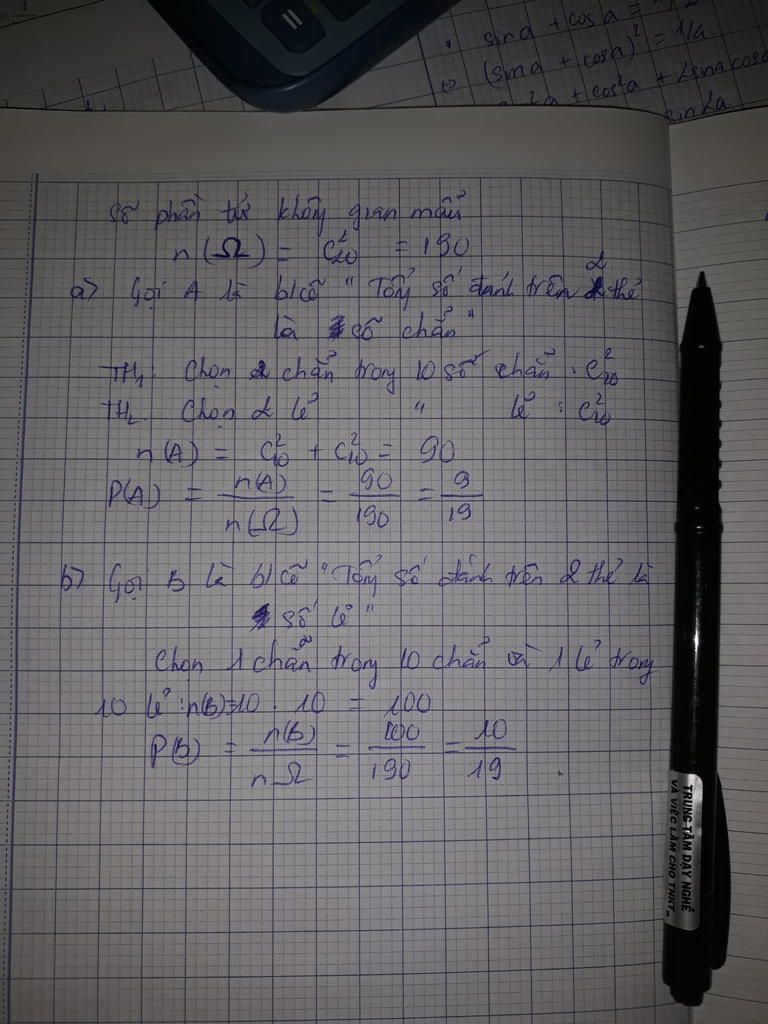 sina + cosa =
(sina + cosa)² = 1/4
²a + cos²a + 2sina cosa
sin2a
Số phần tử không gian mẫu
n(Ω) = C²₂₀ = 190
a) Gọi A là b/cố "Tổng số đánh trên 2 thẻ
là số chẵn"
TH₁: Chọn 2 chẵn trong 10 số chẵn : C²₁₀
TH₂: Chọn 2 lẻ " lẻ : C²₁₀
n(A) = C²₁₀ + C²₁₀ = 90
P(A) = n(A)/n(Ω) = 90/190 = 9/19
b) Gọi B là b/cố "Tổng số đánh trên 2 thẻ là
số lẻ"
Chọn 1 chẵn trong 10 chẵn và 1 lẻ trong
10 lẻ : n(B)=10 . 10 = 100
P(B) = n(B)/nΩ = 100/190 = 10/19
TRUNG TÂM DẠY NGHỀ
VÀ VIỆC LÀM CHO TNKT